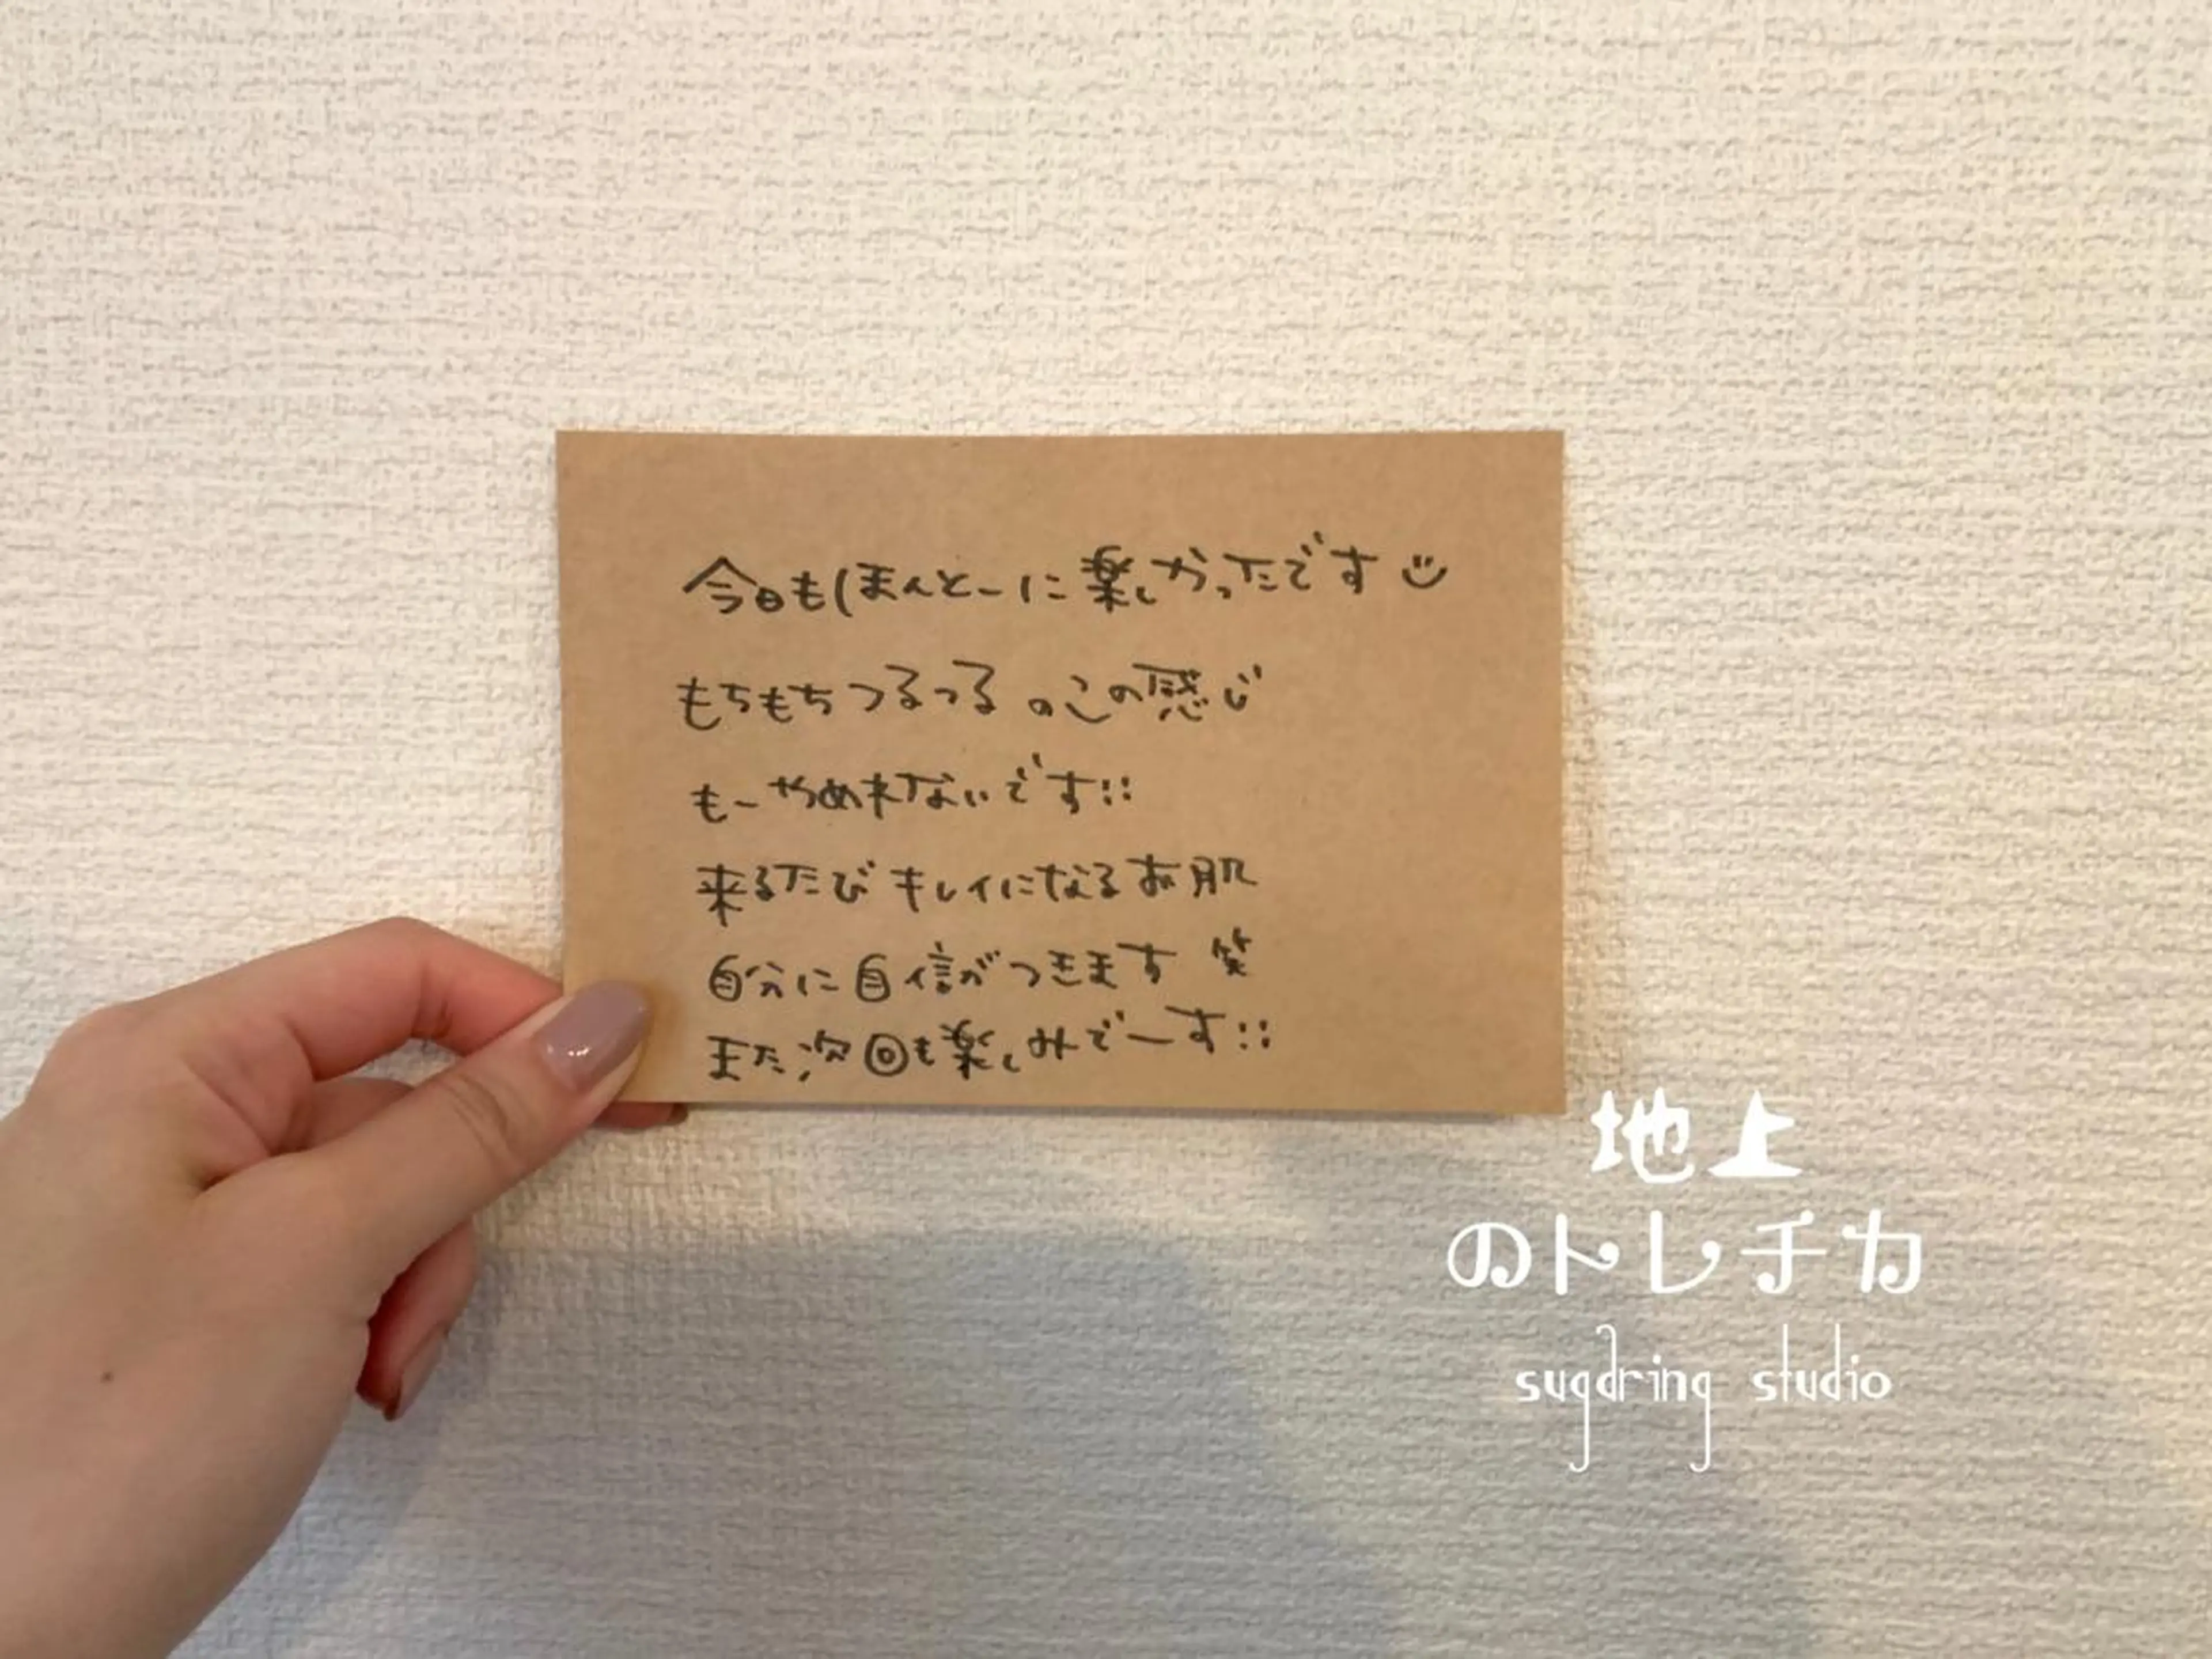 今日もほんとーに楽しかったです
もちもちつるつるのこの感じ
もーやめれないです!!
来るたびキレイになるお肌
自分に自信がつきます 笑
また次回も楽しみでーす!!
地上
のトレチカ
sugaring studio